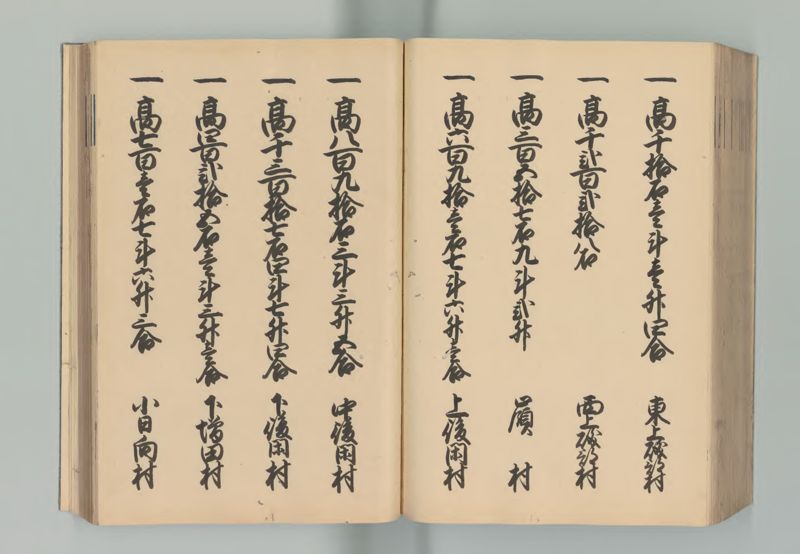 一高千拾石壱斗壱升四合 東上磯部村
一高千弐百弐拾八石 西上磯部村
一高三百五拾七石九斗弐升 原村
一高六百九拾壱石七斗六升壱合 上後閑村
一高八百九拾石三斗三升五合 中後閑村
一高千三百拾七石四斗七升四合 下後閑村
一高四百弐拾五石壱斗三升三合 下増田村
一高七百壱石七斗六升三合 小日向村